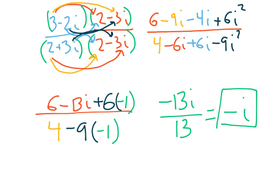 (3-2i)(2-3i) / (2+3i)(2-3i)
6-9i-4i+6i² / 4-6i+6i-9i²
6-13i+6(-1) / 4-9(-1)
-13i / 13 = -i